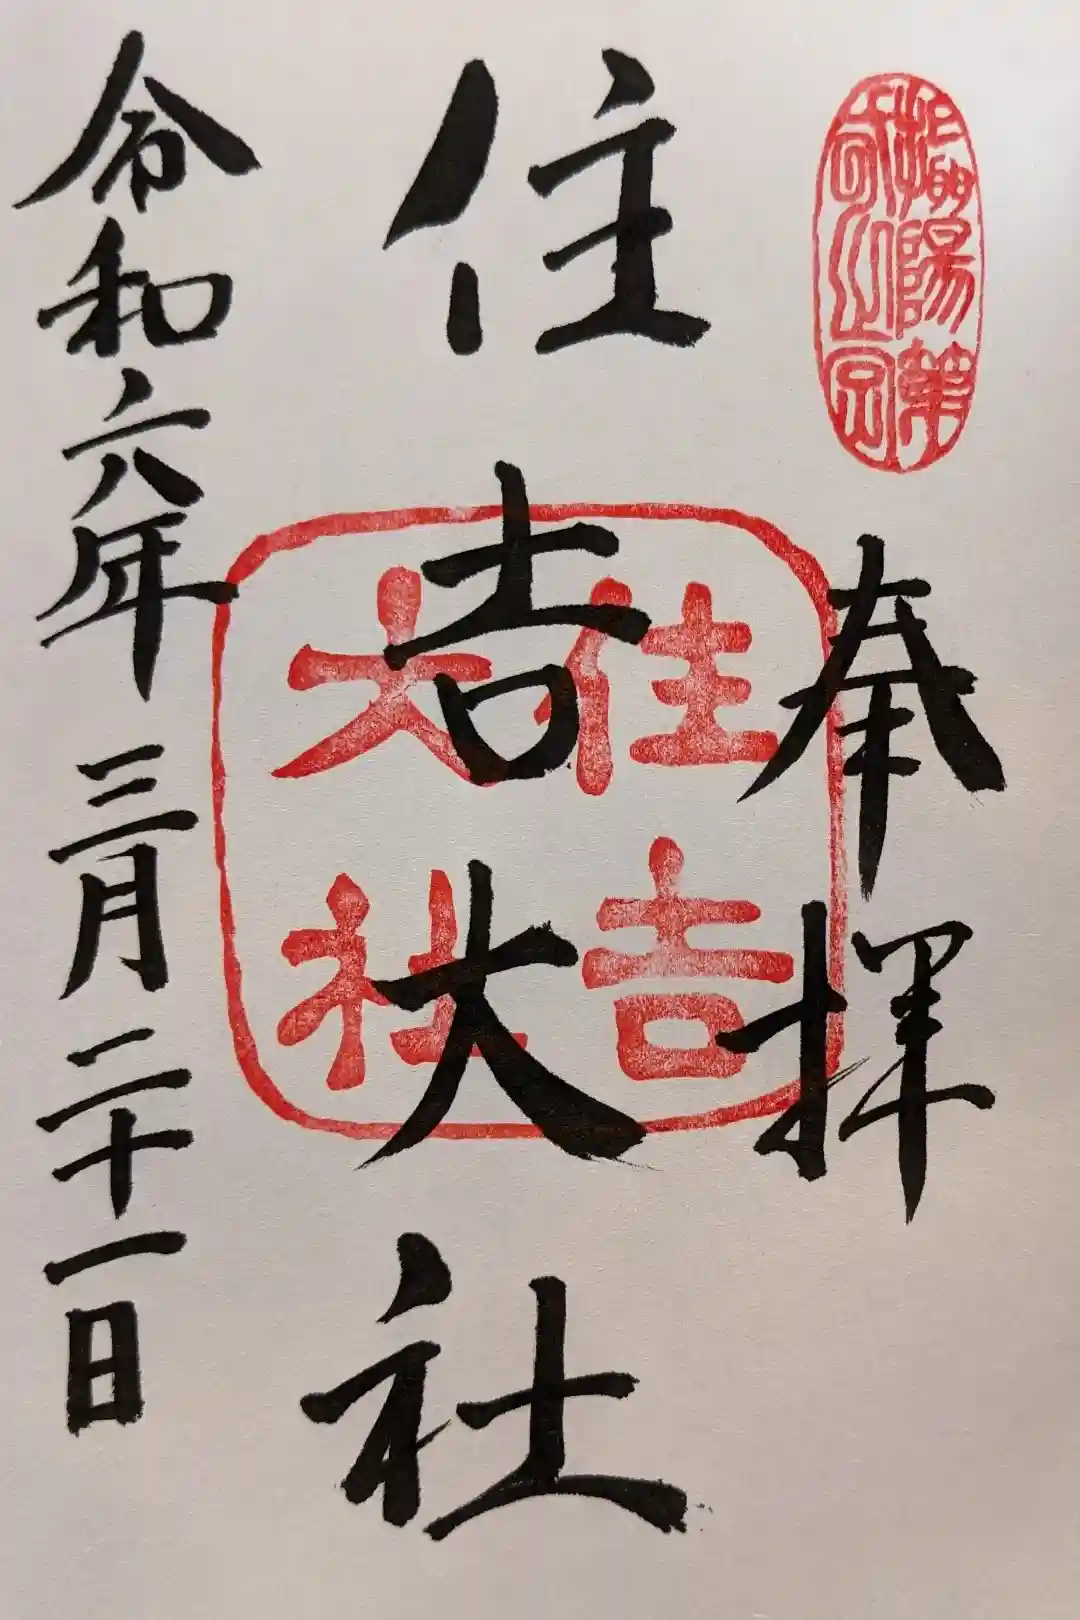 奉拝
住吉大社
令和六年三月二十一日
住吉
大社